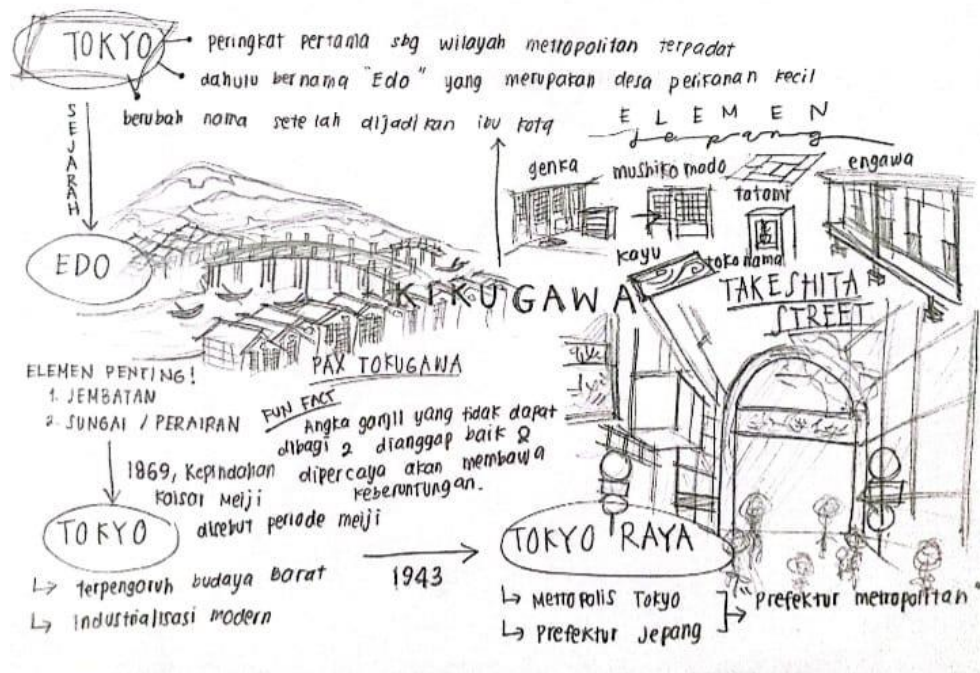 TOKYO
• peringkat pertama sbg wilayah metropolitan terpadat
• dahulu bernama "Edo" yang merupakan desa perikanan kecil
berubah nama setelah dijadikan ibu kota
SEJARAH
ELEMEN
Jepang
genka
mushiko mado
tatami
engawa
kayu
tokonama
EDO
KIKUGAWA
TAKESHITA
STREET
PAX TOKUGAWA
ELEMEN PENTING!
1. JEMBATAN
2. SUNGAI / PERAIRAN
FUN FACT
Angka ganjil yang tidak dapat
dibagi 2 dianggap baik &
dipercaya akan membawa
keberuntungan.
1869, Kepindahan
Kaisar Meiji
disebut periode meiji
TOKYO
↳ terpengaruh budaya barat
↳ Industrialisasi modern
1943
TOKYO RAYA
↳ Metropolis Tokyo
↳ Prefektur Jepang
Prefektur metropolitan"